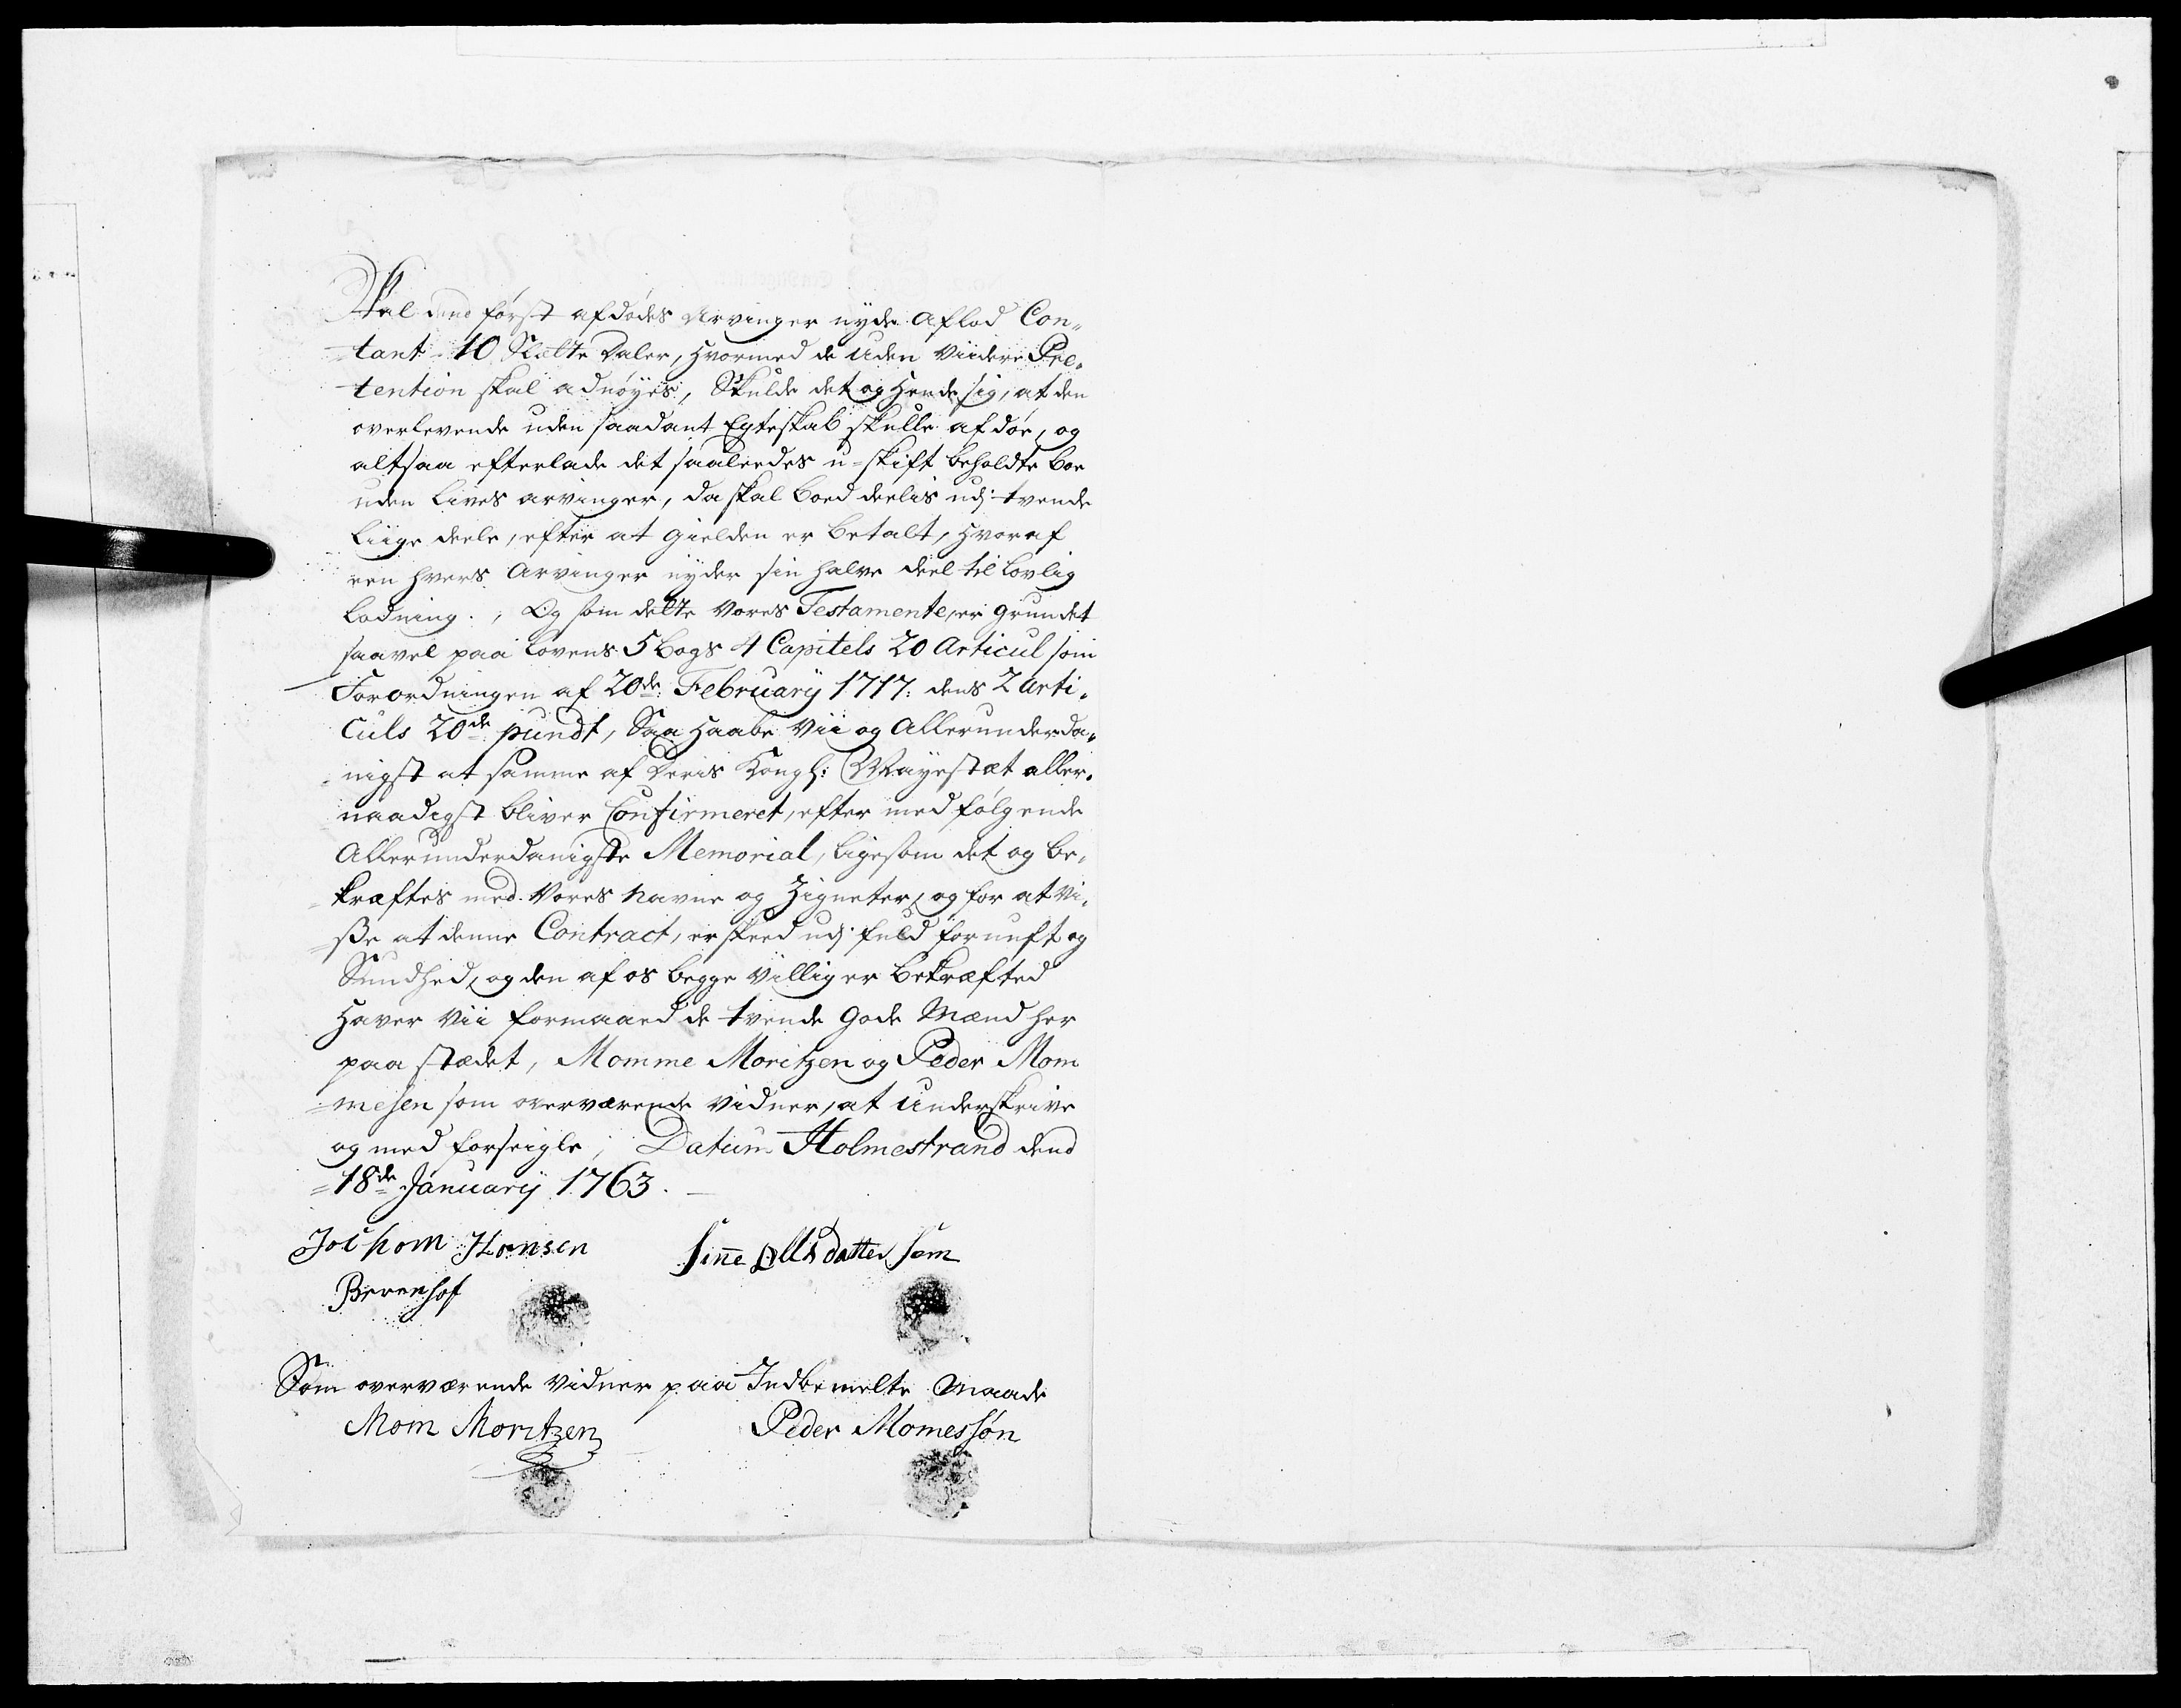 Skal dend først afdødes Arvinger nyde Aflod Con„
„tant 10 Slette daler, hvormed de uden viidere Pre„
tention skal adnøyes, Skulde det og hende sig, at den
overlevende uden saadant Egteskab skulle afdøe, og
altsaa efterlade det saaleedes u-skift beholdte boe
uden Lives arvinger, da skal boed deelis udj tvende
Liige deele, efter at gielden er betalt, hvoraf
een hvers Arvinger nyder sin halve deel til lovlig
lodning., Og som dette vores Testamente, er grundet
saavel paa Lovens 5 bogs 4 Capitels 20 Articul som
Forordningen af 20de: February 1717: dens 2 arti„
Culs 20de pundt, Saa haabe vii og Allerunderda„
nigst at samme af deris Kongl: Mayestæt aller„
naadigst bliver Confirmeret, efter medfølgende
Allerunderdanigste Memorial, ligesom det og be„
kræftes med vores navne og Zigneter, og for at vi„
ße at denne Contract, er skeed udj fuld fornuft og
Sundhed, og den af os begge villig er bekræfted
haver vii formaaed de tvende gode Mænd her
paa stædet, Momme Moritzen og Peder Mom
=mesen som overværende vidner, at underskrive
og med forseigle; Datum Holmestrand dend
=18de January 1763.
Jochom Hansen
Berenhof
Sinne Olls datter som
Som overværende vidner paa Indbemelte Maade
Mom Moritzen
Peder Momessøn